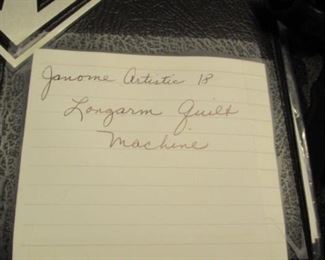 Janome Artistic 18
Longarm Quilt
Machine